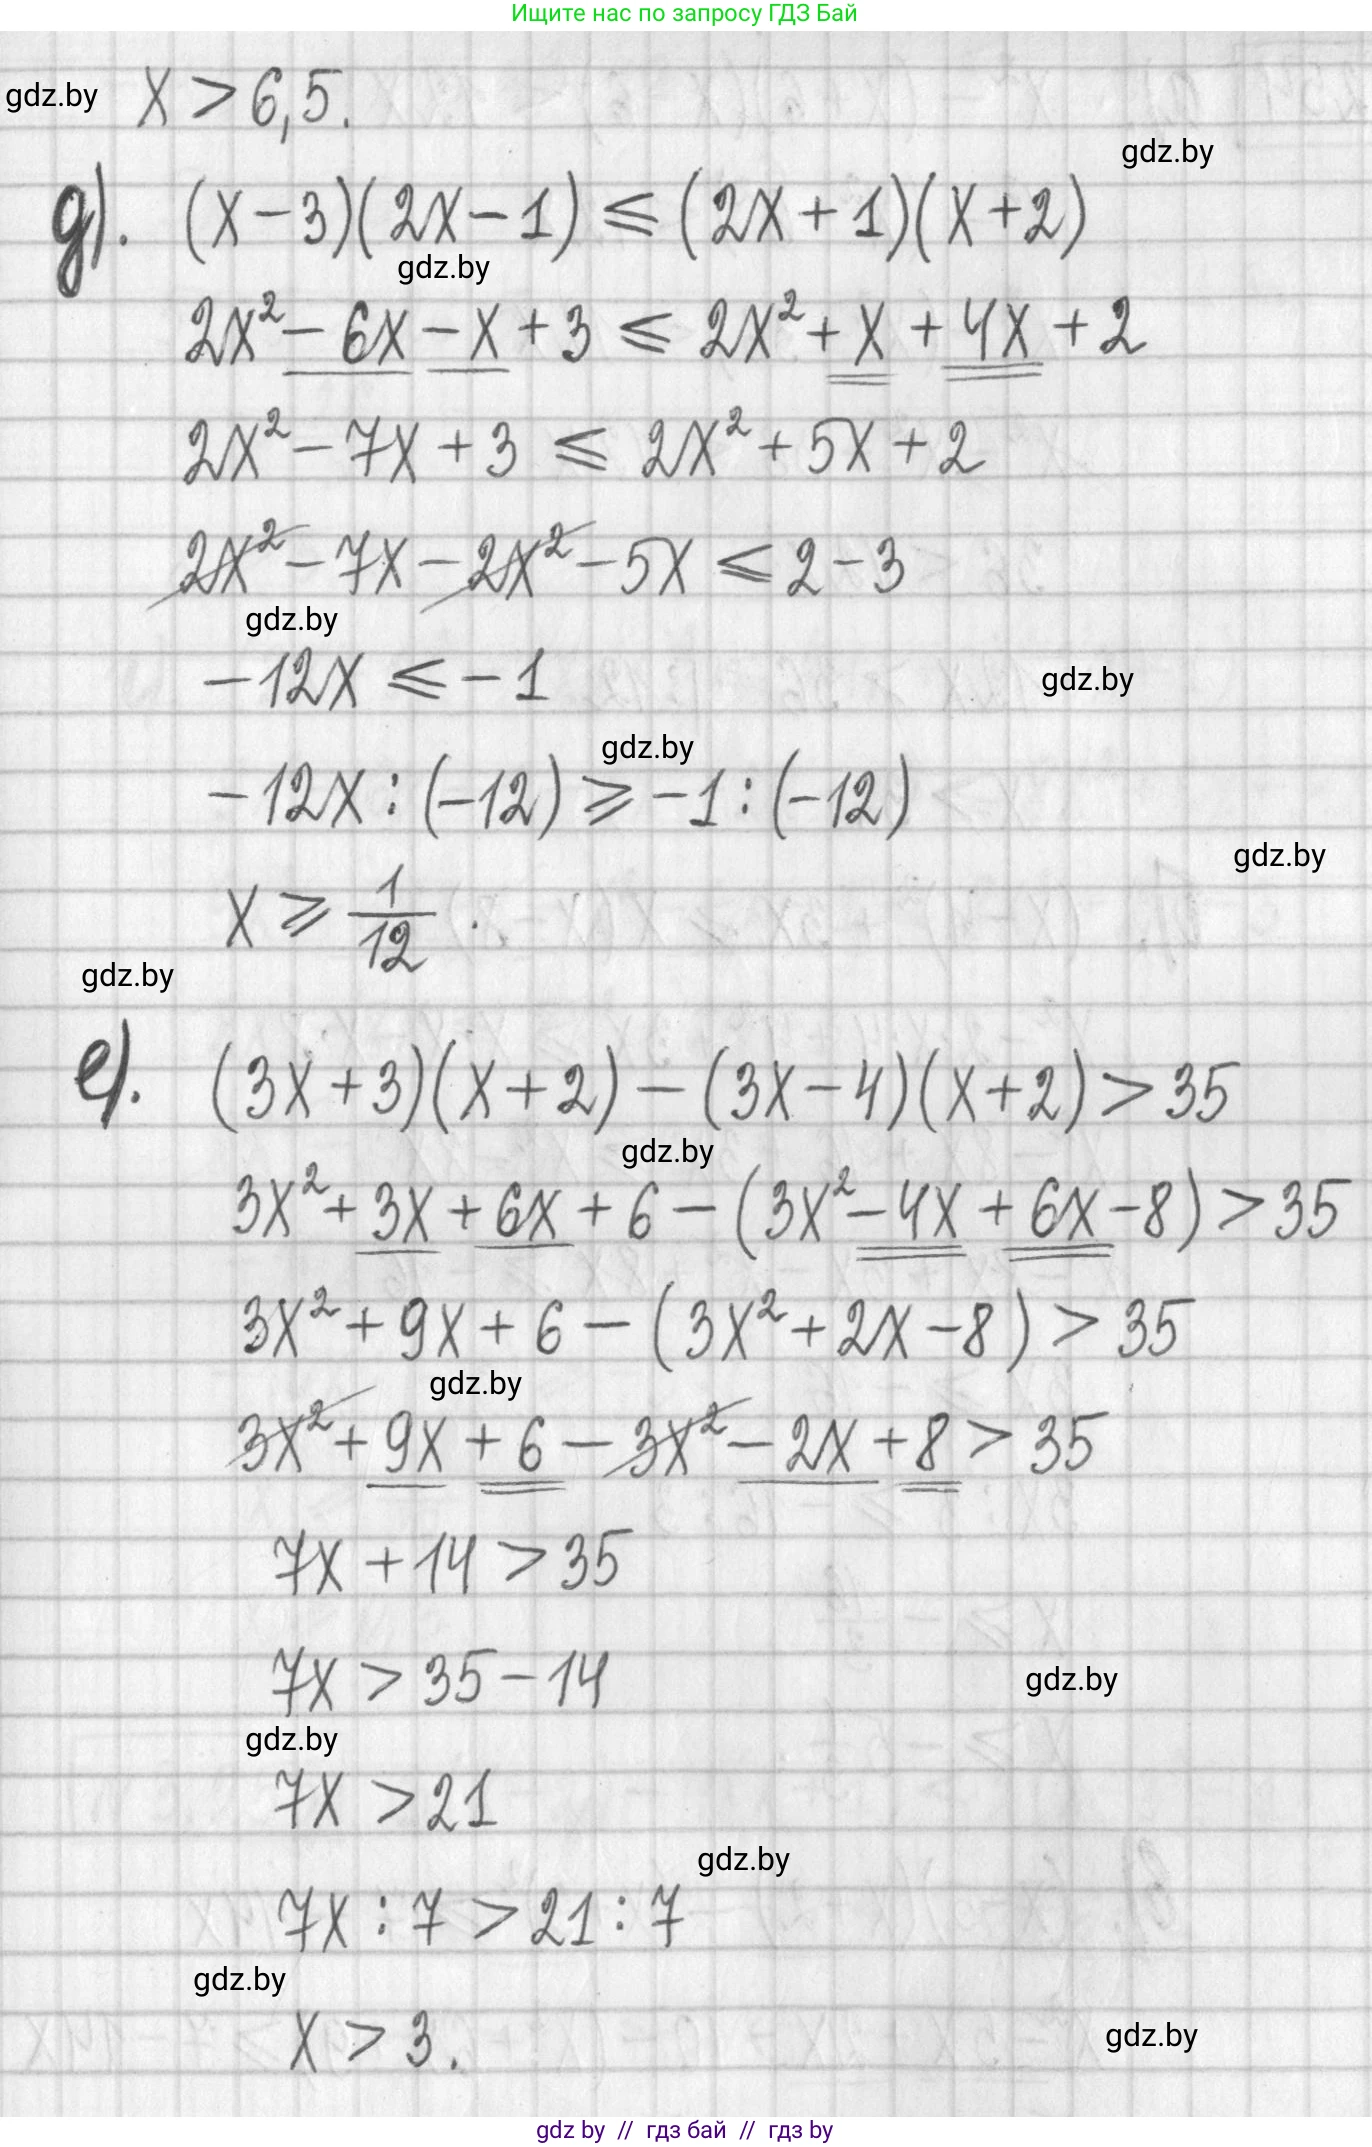 Ищите нас по запросу ГДЗ Бай
gdz.by
x > 6,5.
gdz.by
д). (x − 3)(2x − 1) ⩽ (2x + 1)(x + 2)
gdz.by
2x² − 6x − x + 3 ⩽ 2x² + x + 4x + 2
2x² − 7x + 3 ⩽ 2x² + 5x + 2
2x² − 7x − 2x² − 5x ⩽ 2 − 3
gdz.by
−12x ⩽ −1
gdz.by
gdz.by
−12x : (−12) ⩾ −1 : (−12)
gdz.by
x ⩾ 1/12.
gdz.by
е). (3x + 3)(x + 2) − (3x − 4)(x + 2) > 35
gdz.by
3x² + 3x + 6x + 6 − (3x² − 4x + 6x − 8) > 35
3x² + 9x + 6 − (3x² + 2x − 8) > 35
gdz.by
3x² + 9x + 6 − 3x² − 2x + 8 > 35
7x + 14 > 35
7x > 35 − 14
gdz.by
gdz.by
7x > 21
gdz.by
7x : 7 > 21 : 7
gdz.by
x > 3.
gdz.by
gdz by // гдз бай // гдз by